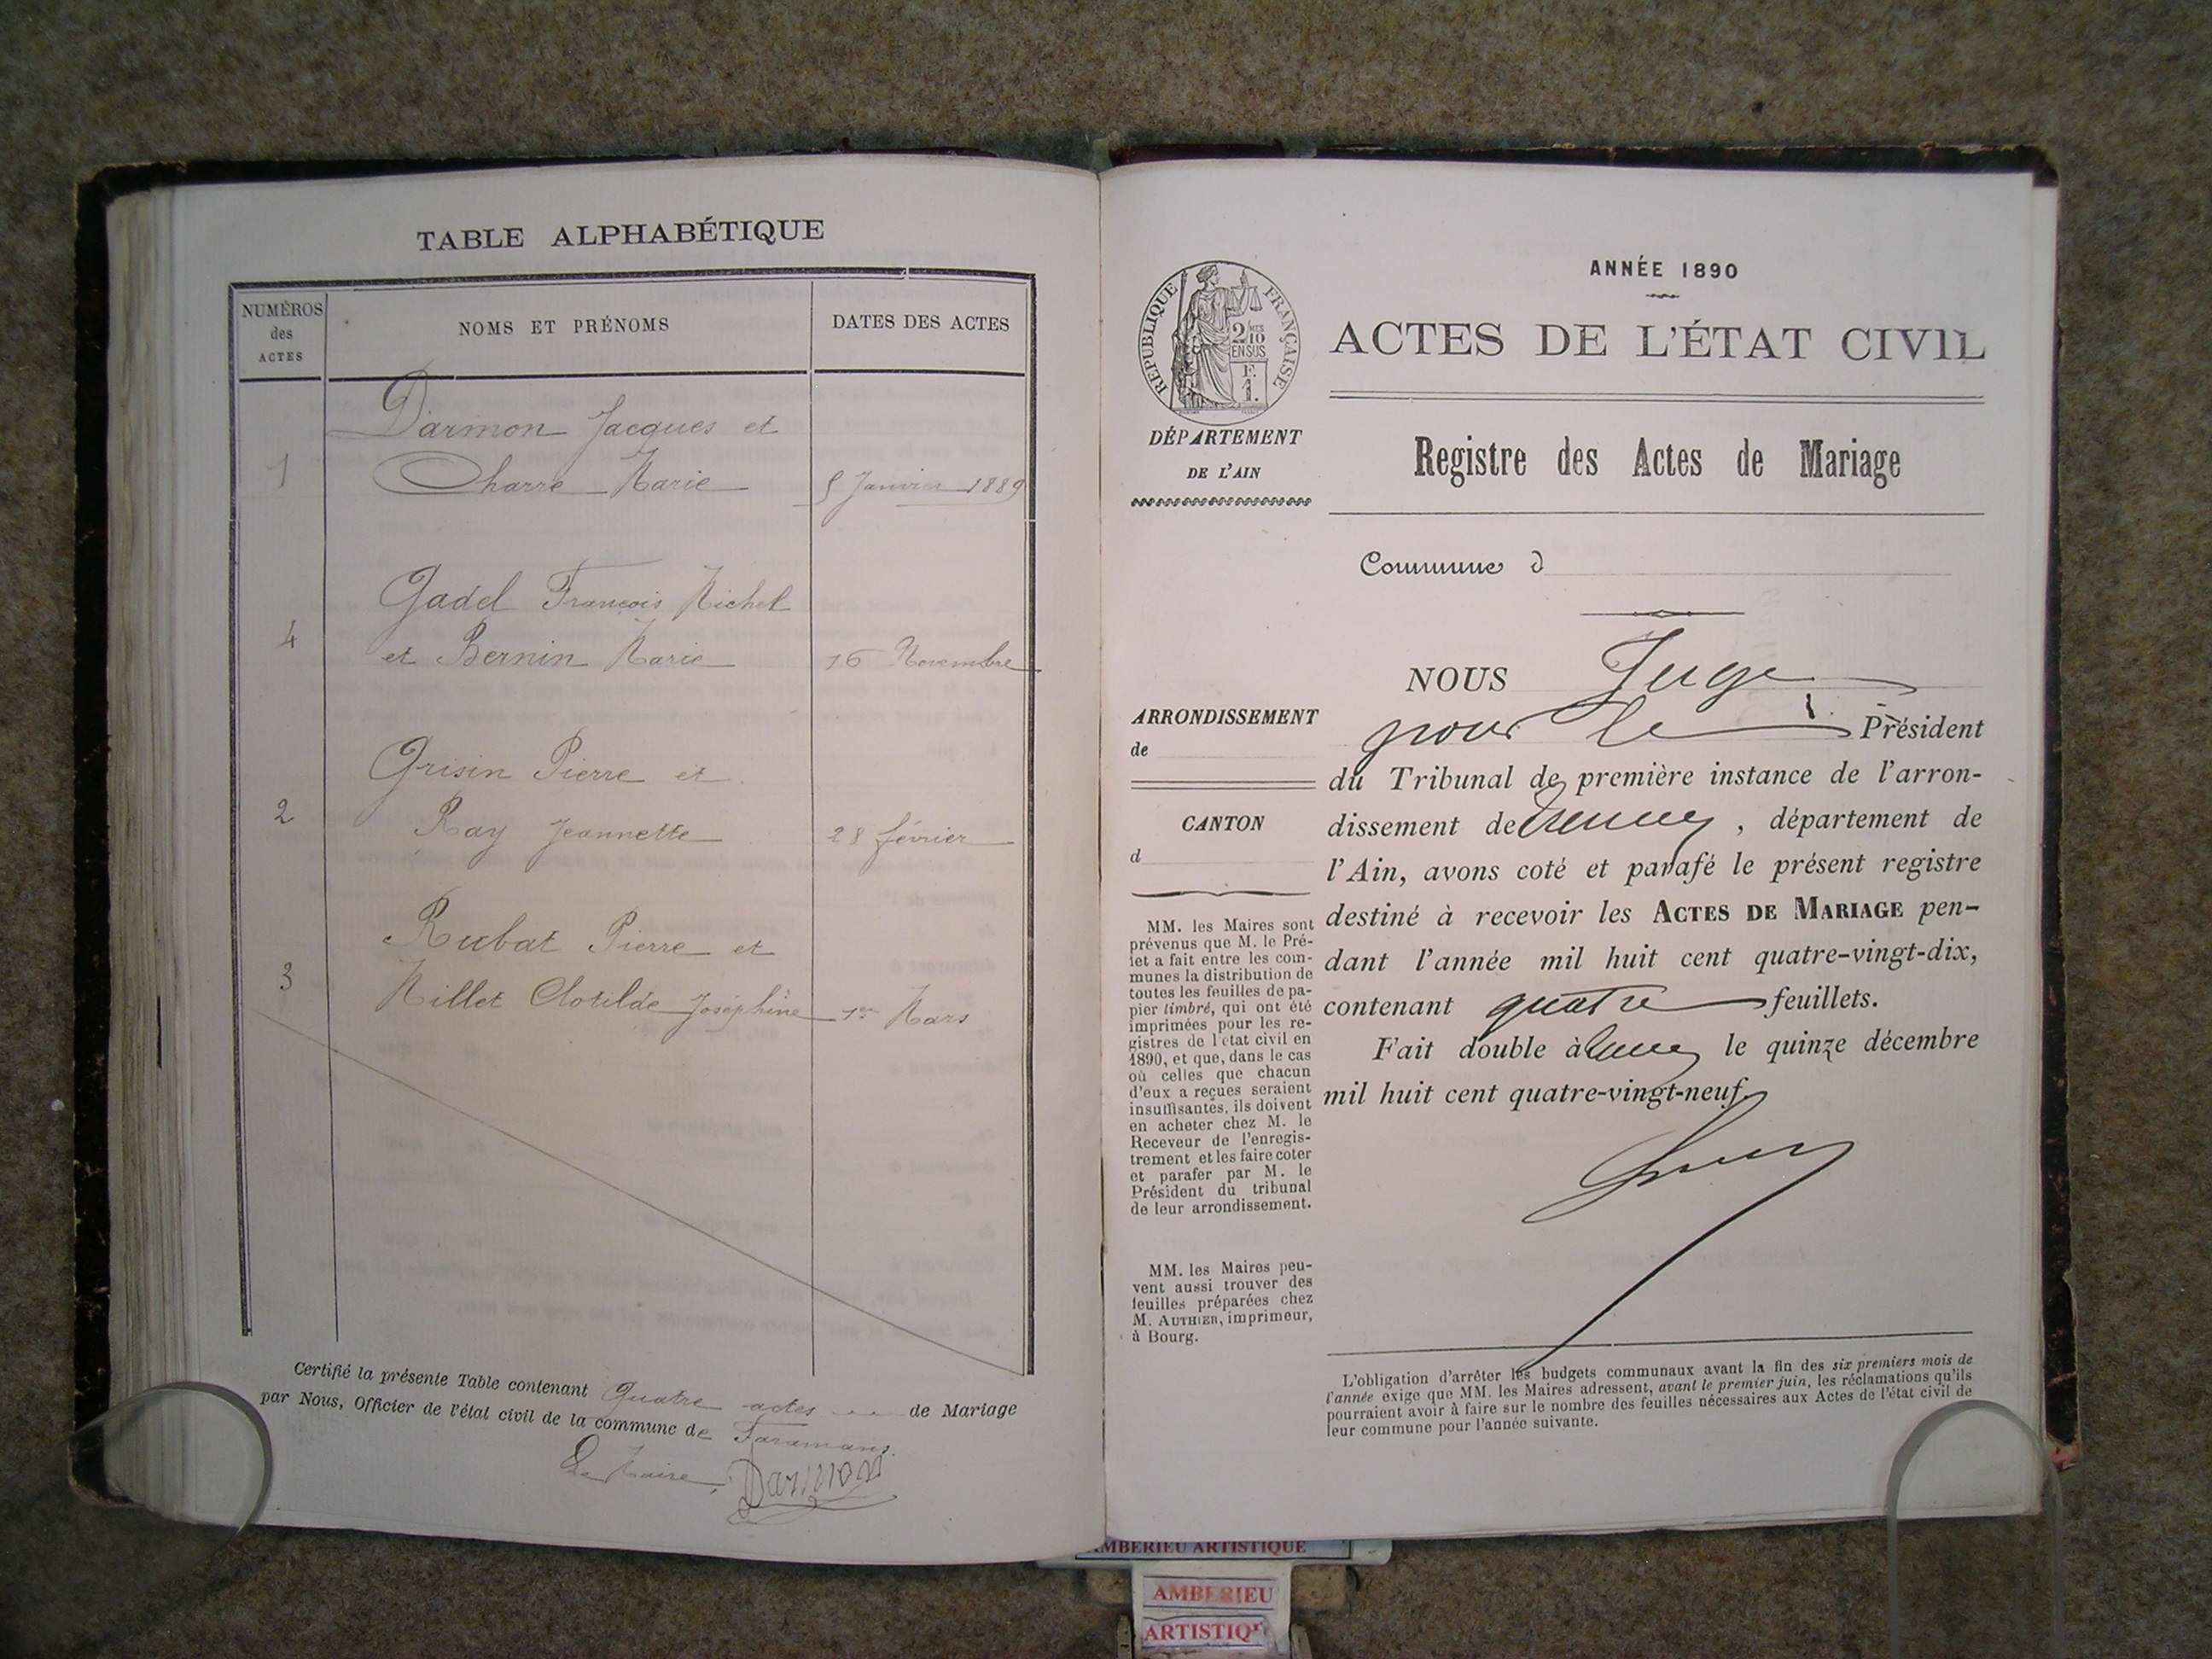 TABLE ALPHABÉTIQUE
NUMÉROS
des
ACTES
NOMS ET PRÉNOMS
DATES DES ACTES
Darmon Jacques et
1 Charre Marie 5 Janvier 1889
Gadel François Michel
4 et Bernin Marie 16 Novembre
Grisin Pierre et
2 Ray Jeannette 28 février
Rubat Pierre et
3 Millet Clotilde Joséphine 1er Mars
Certifié la présente Table contenant Quatre actes de Mariage
par Nous, Officier de l'état civil de la commune de Faramans.
Le Maire, Darmon
RÉPUBLIQUE FRANÇAISE
2/10
EN SUS
F.
1.
DÉPARTEMENT
DE L'AIN
ARRONDISSEMENT
de
CANTON
d
MM. les Maires sont
prévenus que M. le Pré-
fet a fait entre les com-
munes la distribution de
toutes les feuilles de pa-
pier timbré, qui ont été
imprimées pour les re-
gistres de l'état civil en
1890, et que, dans le cas
où celles que chacun
d'eux a reçues seraient
insuffisantes, ils doivent
en acheter chez M. le
Receveur de l'enregis-
trement et les faire coter
et parafer par M. le
Président du tribunal
de leur arrondissement.
MM. les Maires peu-
vent aussi trouver des
feuilles préparées chez
M. AUTHIER, imprimeur,
à Bourg.
ANNÉE 1890
ACTES DE L'ÉTAT CIVIL
Registre des Actes de Mariage
Commune d
NOUS Juge
pour le Président
du Tribunal de première instance de l'arron-
dissement de , département de
l'Ain, avons coté et parafé le présent registre
destiné à recevoir les ACTES DE MARIAGE pen-
dant l'année mil huit cent quatre-vingt-dix,
contenant quatre feuillets.
Fait double à le quinze décembre
mil huit cent quatre-vingt-neuf.
L'obligation d'arrêter les budgets communaux avant la fin des six premiers mois de
l'année exige que MM. les Maires adressent, avant le premier juin, les réclamations qu'ils
pourraient avoir à faire sur le nombre des feuilles nécessaires aux Actes de l'état civil de
leur commune pour l'année suivante.
AMBERIEU ARTISTIQUE
AMBERIEU
ARTISTIQ